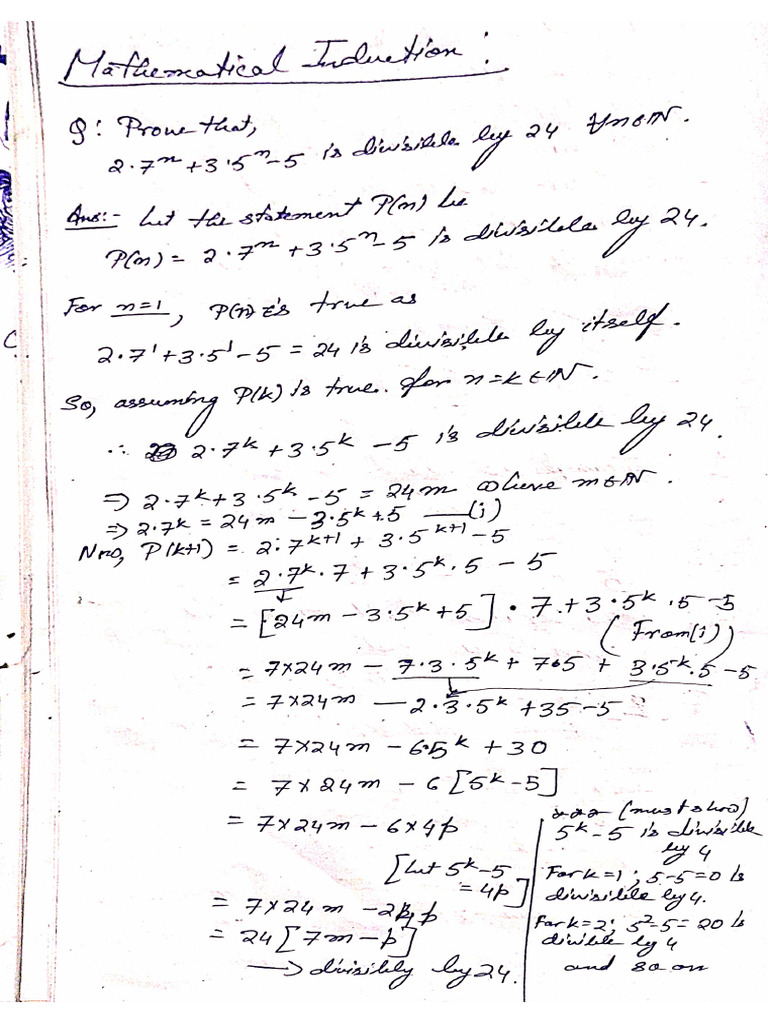 Mathematical Induction :
Q: Prove that,
2·7ⁿ + 3·5ⁿ - 5 is divisible by 24 ∀ n ∈ N.
Ans:- Let the statement P(n) be
P(n) = 2·7ⁿ + 3·5ⁿ - 5 is divisible by 24.
For n=1, P(n) is true as
2·7¹ + 3·5¹ - 5 = 24 is divisible by itself.
So, assuming P(k) is true for n = k ∈ N.
∴ 2·7ᵏ + 3·5ᵏ - 5 is divisible by 24.
⇒ 2·7ᵏ + 3·5ᵏ - 5 = 24m where m ∈ N.
⇒ 2·7ᵏ = 24m - 3·5ᵏ + 5 —(i)
Now, P(k+1) = 2·7ᵏ⁺¹ + 3·5ᵏ⁺¹ - 5
= 2·7ᵏ·7 + 3·5ᵏ·5 - 5
= [24m - 3·5ᵏ + 5] · 7 + 3·5ᵏ·5 - 5
(From(i))
= 7×24m - 7·3·5ᵏ + 7·5 + 3·5ᵏ·5 - 5
= 7×24m - 2·3·5ᵏ + 35 - 5
= 7×24m - 6·5ᵏ + 30
= 7×24m - 6[5ᵏ - 5]
= 7×24m - 6×4p
[Let 5ᵏ - 5
= 4p]
= 7×24m - 24p
= 24[7m - p]
→ divisibly by 24.
*** (must show)
5ᵏ - 5 is divisible
by 4
For k=1; 5-5=0 is
divisible by 4.
For k=2; 5²-5=20 is
divible by 4
and so on